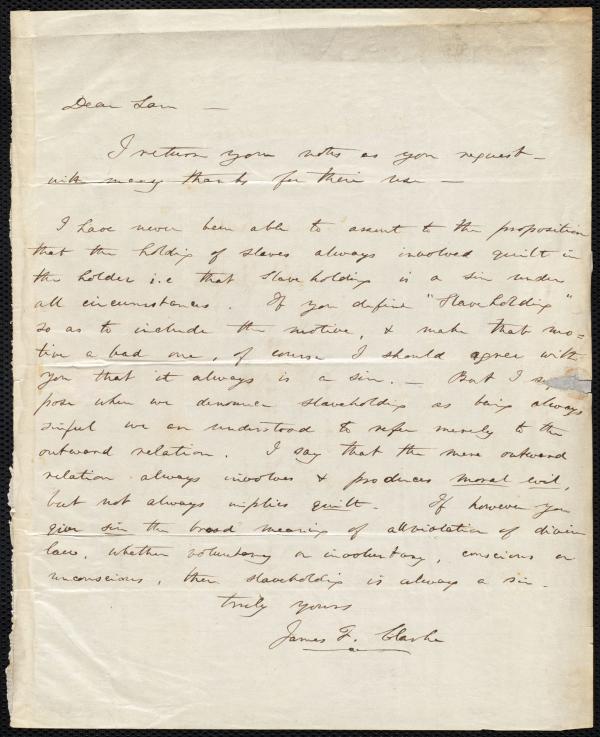 Dear Sam —
I return your notes as you request —
with many thanks for their use —
I have never been able to assent to the proposition
that the holding of slaves always involved guilt in
the holder i.e that slaveholding is a sin under
all circumstances. If you define "slaveholding"
so as to include the motive, & make that mo=
tive a bad one, of course I should agree with
you that it always is a sin. — But I sup
pose when we denounce slaveholding as being always
sinful we are understood to refer merely to the
outward relation. I say that the mere outward
relation always involves & produces moral evil,
but not always implies guilt. If however you
give sin the broad meaning of all violation of divine
law, whether voluntary or involuntary, conscious or
unconscious, then slaveholding is always a sin.
truly yours
James F. Clarke